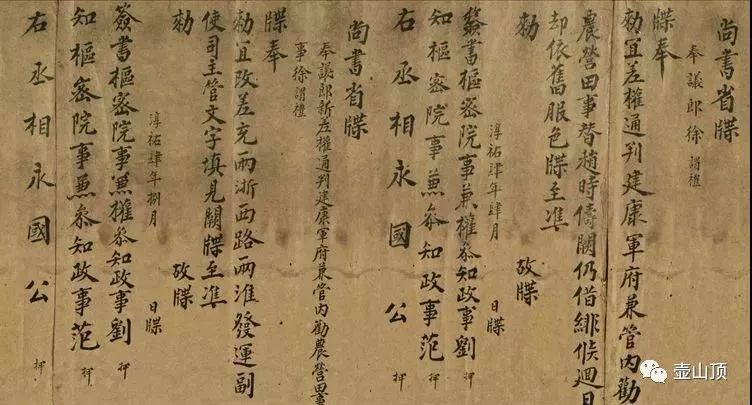 尚書省牒
奉議郎徐謂禮
牒奉
勑宜差權通判建康軍府兼管内勸
農營田事替趙時儔闕仍借緋候迴日
却依舊服色牒至准
勑
故牒
淳祐肆年肆月 日牒
簽書樞密院事兼權參知政事劉 押
知樞密院事兼參知政事范 押
右丞相永國公 押
尚書省牒
奉議郎新差權通判建康軍府兼管内勸農營田事
事徐謂禮
牒奉
勑宜改差充兩浙西路兩淮發運副
使司主管文字填見闕牒至准
勑
故牒
淳祐肆年捌月 日牒
簽書樞密院事兼權參知政事劉 押
知樞密院事兼參知政事范 押
右丞相永國公 押
壶山顶